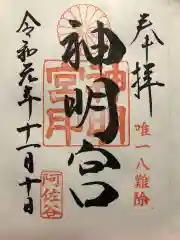 奉拝
唯一八難除
神明宮
神明宮
阿佐ヶ谷
令和元年十一月十日